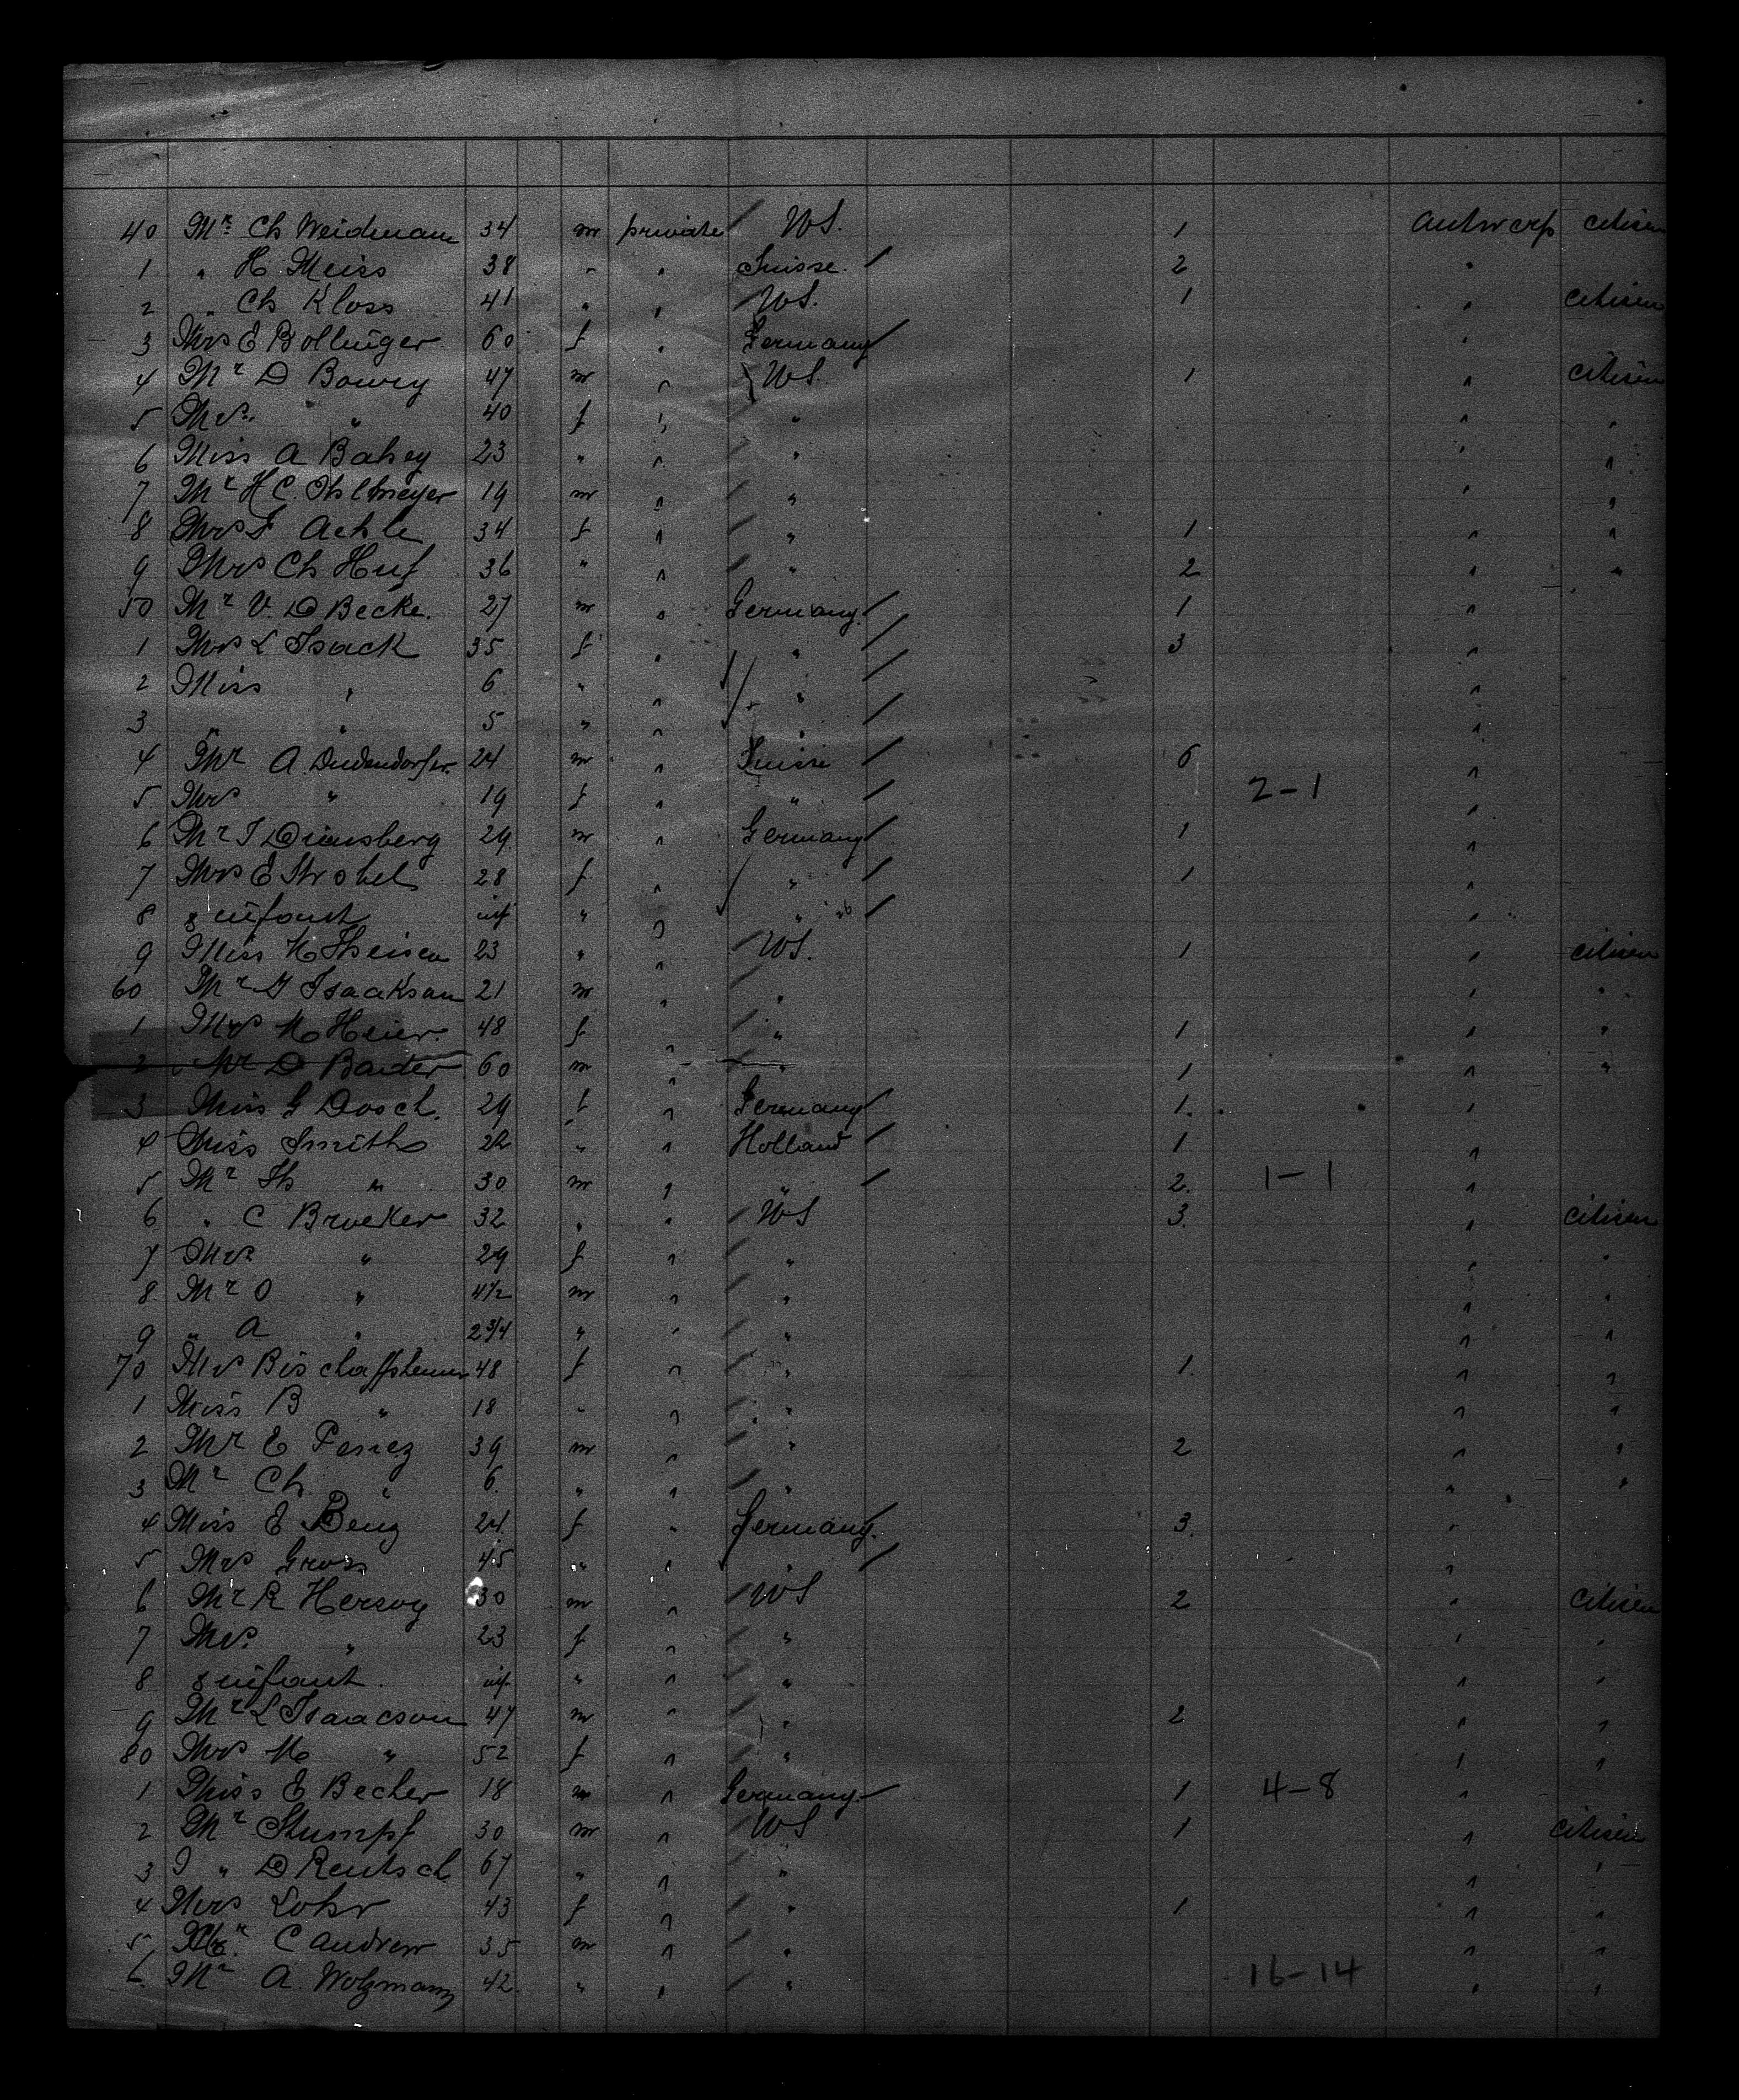 40 Mr Ch Weidmann 34 m private U.S. 1 Antwerp citisen
1 " H Meiss 38 " " Suisse. 2 "
2 " Ch Kloss 41 " " U.S. 1 " citisen
3 Mrs E Bollinger 60 f " Germany "
4 Mr D Bowry 47 m " U.S. 1 " citisen
5 Mrs " 40 f " " " "
6 Miss A Bahey 23 " " " " "
7 Mr H C. 19 m " " " "
8 Mrs F Aehle 34 f " " 1 " "
9 Mrs Ch Huf 36 " " " 2 " "
50 Mr V. D Becke. 27 m " Germany. 1 "
1 Mrs L Isack 35 f " " 3 "
2 Miss " 6 " " " "
3 " " 5 " " " "
4 Mr A. Dudendorfer. 24 m " Suisse 6 "
5 Mrs " 19 f " " 2-1 "
6 Mr J Dinsberg 29 m " Germany 1 "
7 Mrs E Strobel 28 f " " 1 "
8 & infant inf " " " "
9 Miss K Theisen 23 " " U.S. 1 " citisen
60 Mr G Isaakson 21 m " " " "
1 Mrs M Heier. 48 f " " 1 " "
2 Mr D Bander 60 m " " 1 " "
3 Miss G Dosch. 29 f " Germany 1. "
4 Miss Smith 22 " " Holland 1 "
5 Mr Th " 30 m " " 2. 1-1 "
6 " C Broeker 32 " " U.S 3. " citisen
7 Mrs " 29 f " " " "
8 Mr O " 4 1/2 m " " " "
9 " A " 2 3/4 " " " " "
70 Mrs Bischoffsheim 48 f " " 1. " "
1 Miss B " 18 " " " " "
2 Mr E Perrez 39 m " " 2 " "
3 Mr Ch " 6. " " " " "
4 Miss E Benz 24. f " Germany. 3. "
5 Mrs Gross 45 " " " "
6 Mr R Hersog 30 m " U.S 2 " citisen
7 Mrs. " 23 f " " " "
8 & infant. inf " " " " "
9 Mr L Isaacson 47 m " " 2 " "
80 Mrs M " 52 f " " " "
1 Miss E Becher 18 m " Germany. 1 4-8 "
2 Mr Stumpf 30 m " U.S 1 " citisen
3 " D Rentsch 67 " " " " "
4 Mrs Lohr 43 f " " 1 " "
5 Mr C Andrew 35 m " " " "
6 Mr A. Wolzmann 42 " " " 16-14 " "